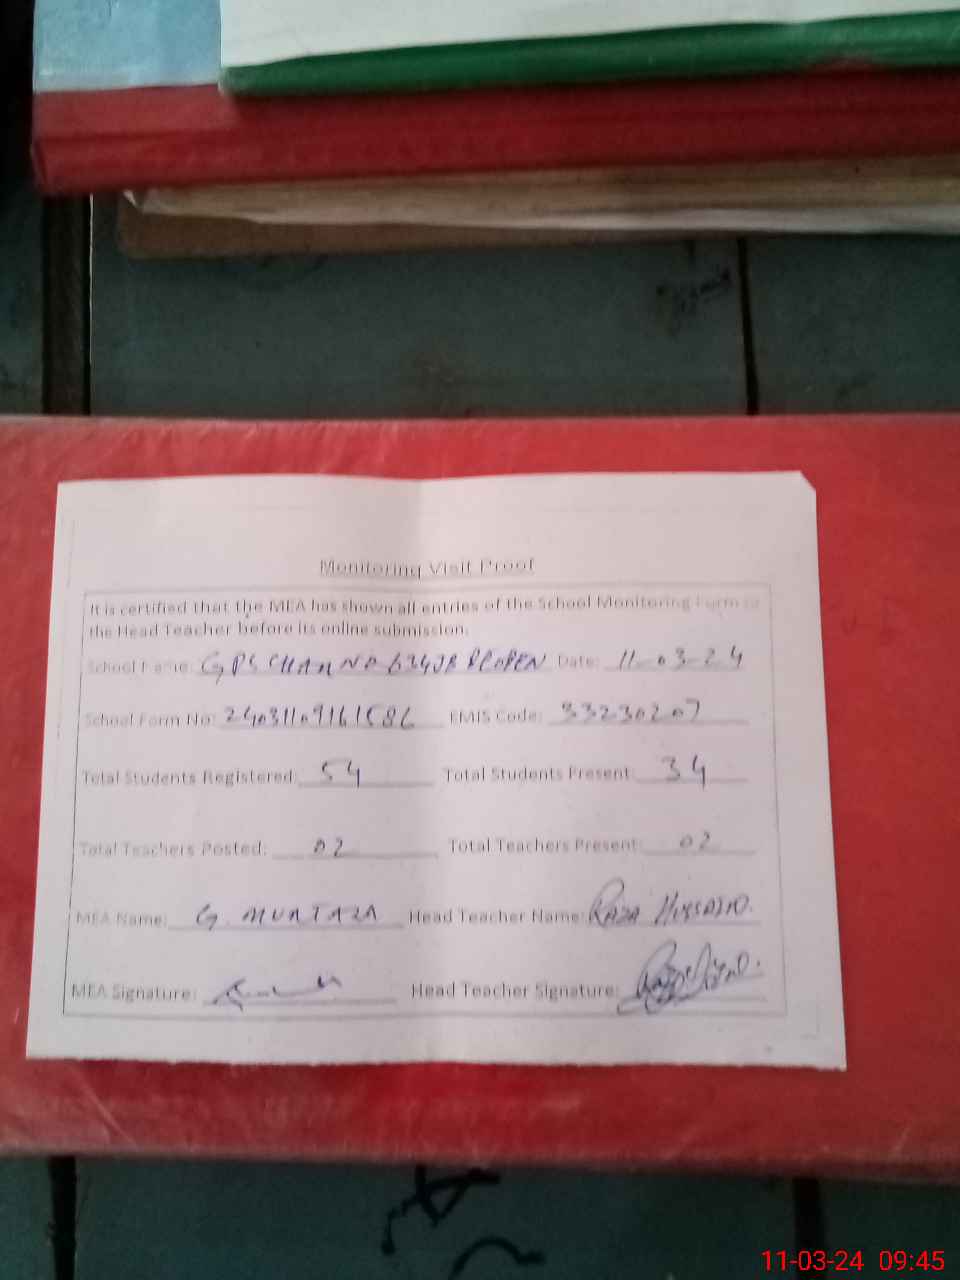 Monitoring Visit Proof
It is certified that the MEA has shown all entries of the School Monitoring Form to
the Head Teacher before its online submission.
School Name: GPS CHAK NO 634JB REOPEN Date: 11-03-24
School Form No: EMIS Code: 33230207
Total Students Registered: 54 Total Students Present: 34
Total Teachers Posted: 02 Total Teachers Present: 02
MEA Name: G. MURTAZA Head Teacher Name: RAZA HUSSAIN.
MEA Signature: Head Teacher Signature:
11-03-24 09:45